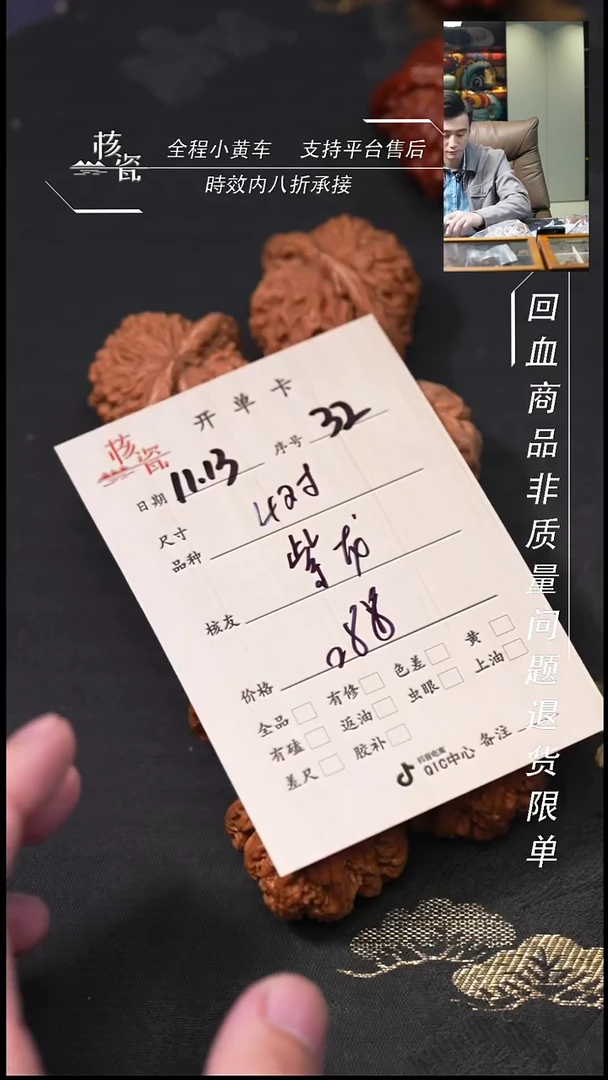 核瓷
全程小黄车 支持平台售后
時效内八折承接
回血商品非质量问题退货限单
开单卡
核瓷
日期 11.13 序号 32
尺寸 4对
品种
核友
价格
全品 有修 色差 黄
有磕 返油 虫眼 上油
差尺 胶补
抖音电商
QIC中心 备注